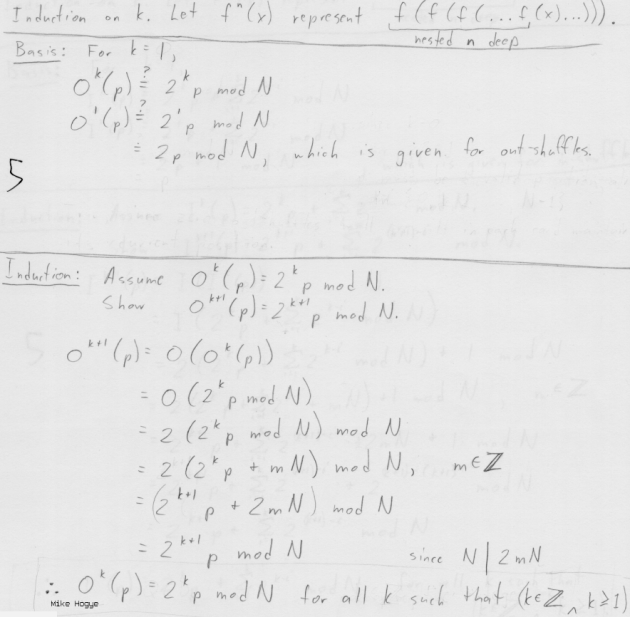 Induction on k. Let fⁿ(x) represent f(f(f(...f(x)...))).
nested n deep
Basis: For k = 1,
Oᵏ(p) ≟ 2ᵏp mod N
O¹(p) ≟ 2¹p mod N
= 2p mod N, which is given for out-shuffles.
5
Induction: Assume Oᵏ(p) = 2ᵏp mod N.
Show Oᵏ⁺¹(p) = 2ᵏ⁺¹p mod N.
Oᵏ⁺¹(p) = O(Oᵏ(p))
= O(2ᵏp mod N)
= 2(2ᵏp mod N) mod N
= 2(2ᵏp + mN) mod N, m∈ℤ
= (2ᵏ⁺¹p + 2mN) mod N
= 2ᵏ⁺¹p mod N since N | 2mN
∴ Oᵏ(p) = 2ᵏp mod N for all k such that (k∈ℤ ∧ k≥1)
Mike Hogye